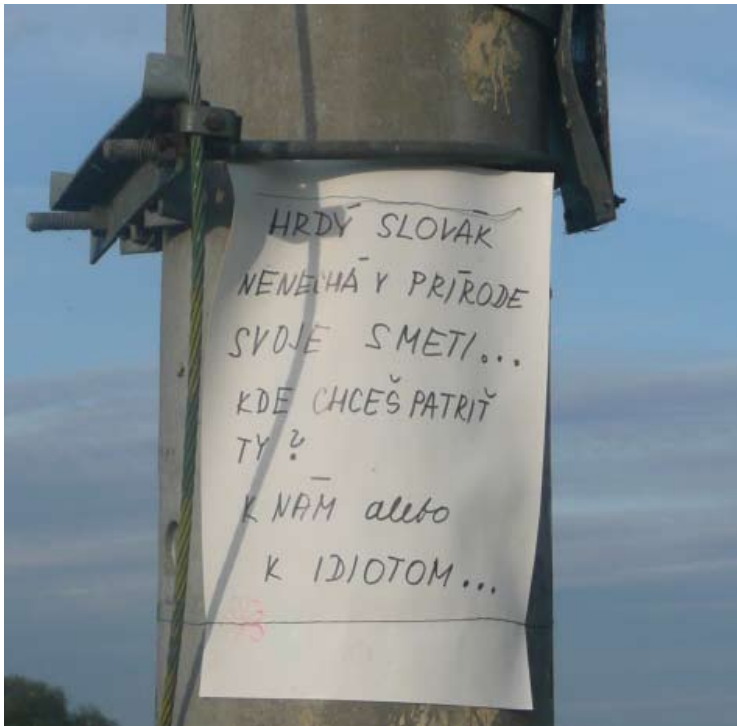 HRDÝ SLOVÁK
NENECHÁ V PRÍRODE
SVOJE SMETI...
KDE CHCEŠ PATRIŤ
TY?
K NÁM alebo
K IDIOTOM...